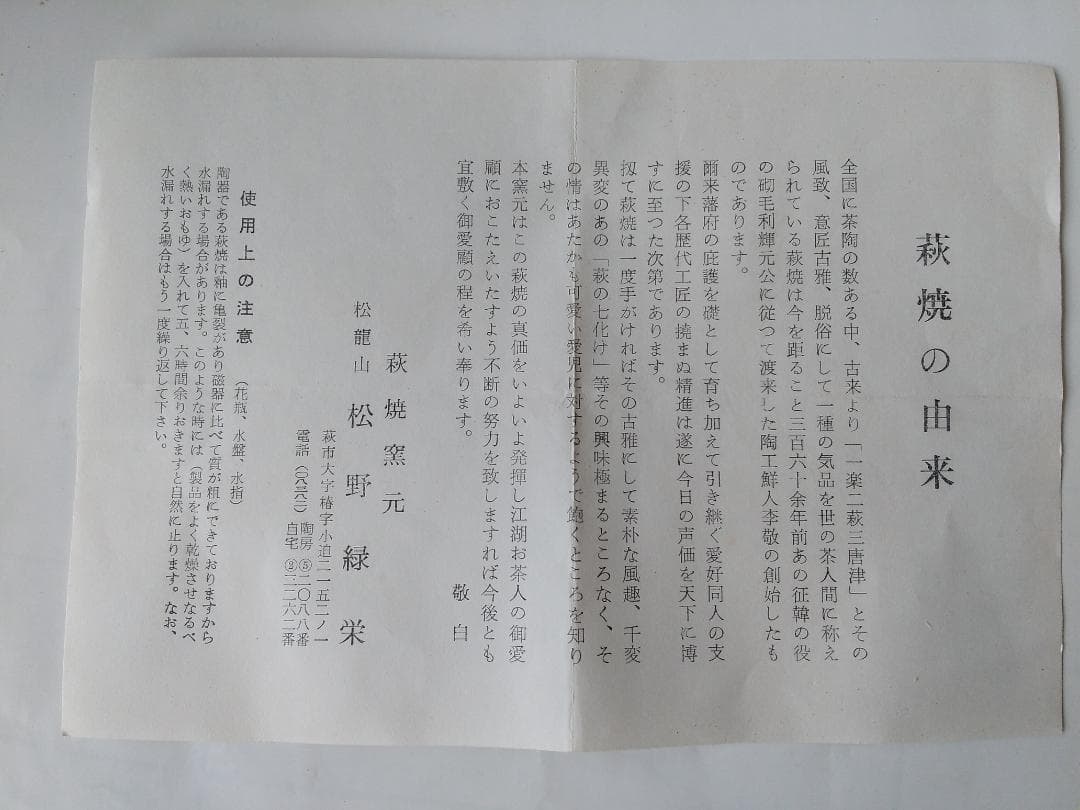 萩焼の由来
全国に茶陶の数ある中、古来より「一楽二萩三唐津」とその
風致、意匠古雅、脱俗にして一種の気品を世の茶人間に称え
られている萩焼は今を距ること三百六十余年前あの征韓の役
の砌毛利輝元公に従つて渡来した陶工鮮人李敬の創始したも
のであります。
爾来藩府の庇護を礎として育ち加えて引き継ぐ愛好同人の支
援の下各歴代工匠の撓まぬ精進は遂に今日の声価を天下に博
すに至つた次第であります。
扨て萩焼は一度手がければその古雅にして素朴な風趣、千変
異変のあの「萩の七化け」等その興味極まるところなく、そ
の情はあたかも可愛い愛児に対するようで飽くところを知り
ません。
本窯元はこの萩焼の真価をいよいよ発揮し江湖お茶人の御愛
顧におこたえいたすよう不断の努力を致しますれば今後とも
宜敷く御愛顧の程を希い奉ります。
敬白
萩焼窯元
松龍山 松野緑栄
萩市大字椿字小迫二一五二ノ一
電話(〇八三八二) 陶房⑤二〇八八番
自宅②三二六二番
使用上の注意 (花瓶、水盤、水指)
陶器である萩焼は釉に亀裂があり磁器に比べて質が粗にできておりますから
水漏れする場合があります。このような時には(製品をよく乾燥させなるべ
く熱いおもゆ)を入れて五、六時間余りおきますと自然に止ります。なお、
水漏れする場合はもう一度繰り返して下さい。